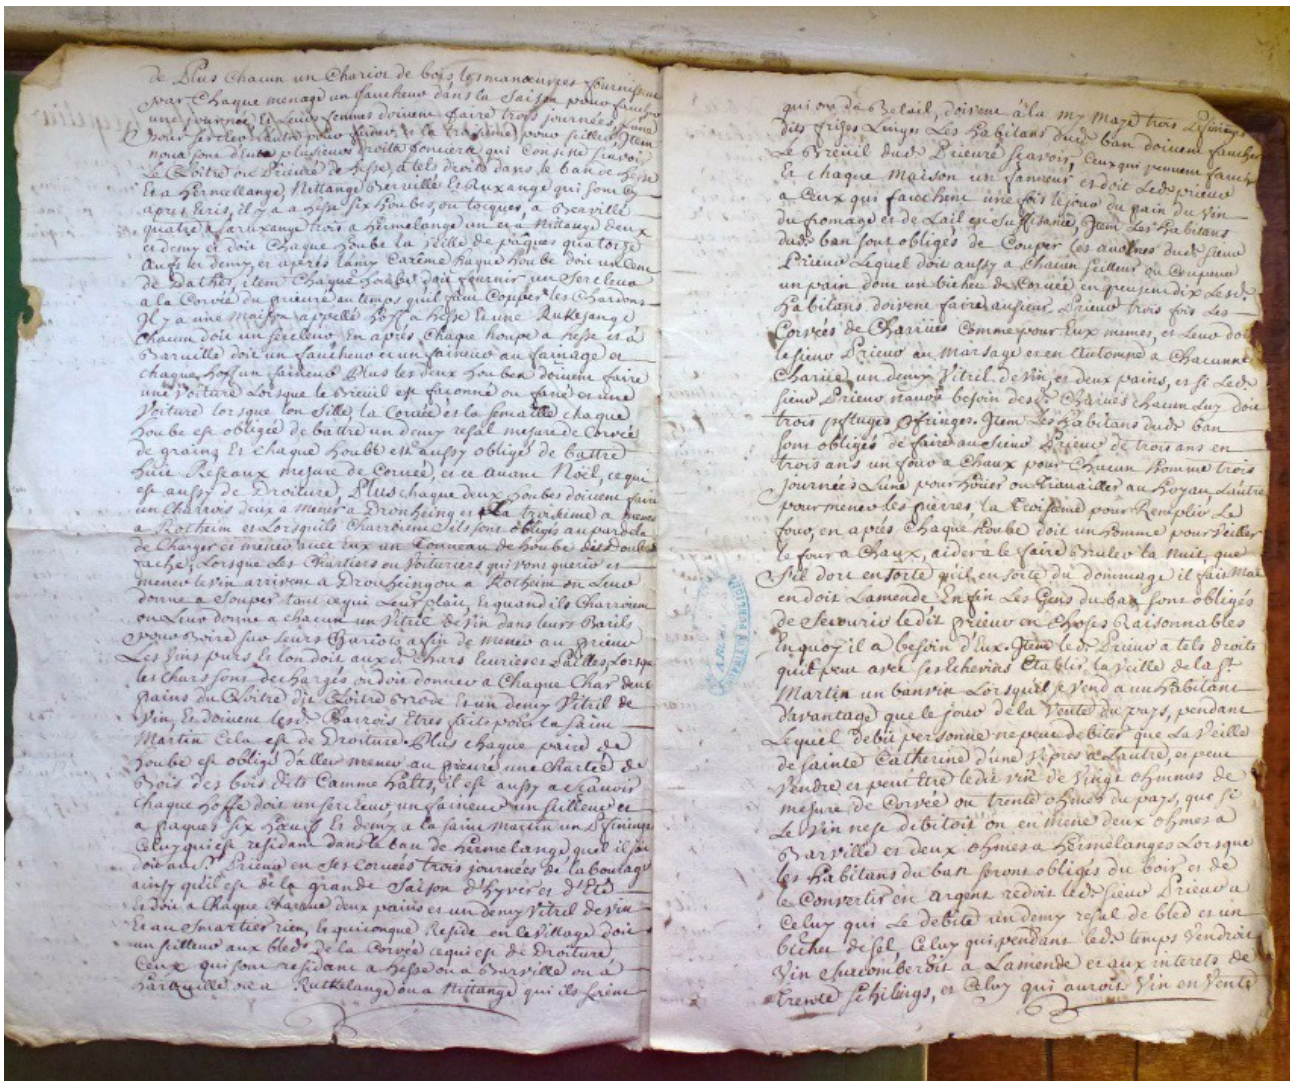 de Plus chacun un chariot de bois les manœuvres fournissent
par chaque menage un faucheur dans la saison pour faucher
une journée et leur femmes doivent faire trois journées, une
pour sercler l'autre pour feiner, et la troisieme pour seiller, Item
nous sont deus plusieurs droits fonciers qui consiste sçavoir
Le Cloitre ou Prieuré de hesse, a tels droits dans le ban de hesse
et a hermellange, Nittange Barville et Ruxange qui sont cy
apres écris, il y a a hesse six houbes, ou tocques, a Barville
quatre a Ruxange trois a hermelange un et a Nittange deux
et demy et doit chaque hoube la veille de paques quatorze
œufs et demy, et apres la my carême chaque hoube doit un cent
de item chaque hoube doit fournir un sercleur
a la Corvée du prieuré au temps qu'il faut couper les chardons
Il y a une maison appellé hoff a hesse et une a Rukesange
chacun doit un sercleur, en après chaque houpe a hesse et a
Barville doit un faucheur et un faineur au fainage et
chaque hoff un faineur Plus les deux houben doivent faire
une voiture lorsque le Breuil est façonné ou fané et une
voiture lorsque l'on sille la Corvée et la semaille chaque
hoube est obligée de battre un demy resal mesure de Corvée
de grains Et chaque houbé est aussy obligé de battre
huit Reseaux mesure de Corvée, et ce avant Noël, ce qui
est aussy de Droiture, Plus chaque deux houbes doivent faire
un charrois deux a mener a Dronheing et la troisieme a mener
a Rotheim et Lorsquils charroient ils sont obligés au par dela
de charger et mener avec Eux un Tonneau de houbé dit
fache, Lorsque les chartiers ou Voituriers qui vont querir et
mener le vin arrivent a Drouheing ou a Rotheim on Leur
donne a souper tant ce qui Leur plait, Et quand ils charroient
on Leur donne a chacun un Vitril de Vin dans leurs Barils
pour Boire sur leurs chariots afin de mener au prieuré
Les vins purs et lon doit aux d. chars Ecuries et Pailles, Lorsque
les chars sont dechargés on doit donner a chaque char deux
pains du Cloitre dit Cloitre Brode et un demy Vitril de
Vin, Et doivent lesd. Barrois Etres faits pour la saint
Martin cela est de Droiture. Plus chaque paire de
houbé est obligé d'aller mener au prieuré une Chartée de
Bois des bois dits Camme hatts, il est aussy a sçavoir
chaque hoffe doit un sercleur un faineur un seilleur et
a paques six hœufs et demy a la saint martin un
Celuy qui est residant dans le ban de hermelange quel il soit
doit aud. Prieur en ses corvées trois journées de labourage
ainsy qu'il est de la grande saison d'hyver et d'Eté
Et doit a chaque charue deux pains et un demy Vitril de vin
Et au rien, Et quiconque Reside en ce Village doit
un seilleur aux bleds de la Corvée ce qui est de Droiture
Ceux qui sont residant a hesse ou a Barville ou a
hartzville ou a Ruthelange ou a Nittange qui ils soient
qui ont du Betail, doivent à la my maye trois
dits Linges Les habitans dud. ban doivent faucher
Le Breuil dud. Prieuré scavoir, ceux qui peuvent faucher
Et chaque maison un fanneur et doit Led. prieur
a ceux qui fauchent une fois le jour du pain du vin
du fromage et de Lail en suffisance, Item Les habitans
dud. ban sont obligés de Couper les avoines dud. sieur
Prieur Lequel doit aussy a chacun seilleur ou coupeur
un pain dont un bichet de Corvée en peuvent dix Lesd.
habitans doivent faire aud. sieur Prieur trois fois Les
Corvées de Charrües Comme pour Eux memes, et Leur doit
le sieur Prieur au Marsage et en Automne a chacunne
Chariie un demy Vitril de vin, et deux pains, et si Led.
sieur Prieur n'avoit besoin desd. Chariies chacun Luy doit
trois Item Les habitans dud. ban
sont obligés de faire aud. sieur Prieur de trois ans en
trois ans un four a chaux pour chacun homme trois
journées L'une pour houer ou travailler au hoyau L'autre
pour mener les pierres, La troisieme pour Remplir Le
four, en après chaque houbé doit un homme pour veiller
le four a chaux, aider a le faire Bruler la nuit, que
s'il dort en sorte qu'il en sorte du dommage il fait Mal
en doit Lamende Enfin Les Gens du ban sont obligés
de secourir ledit prieur en choses Raisonnables
En quoy il a besoin d'Eux. Item led. Prieur a tels droits
qu'il peut avec ses Echevins Etablir la veille de la St.
Martin un banvin Lorsquil se vend a un habitant
d'avantage que le jour de la vente du pays, pendant
Lequel debit personne ne peut debiter que La Veille
de sainte Catherine d'une vepres a Lautre, et peut
vendre et peut Etre ledit vin de Vingt ohmnes de
mesure de Corvée ou trente ohmes du pays, que si
Le vin ne se debitoit on en mene deux ohmes a
Barville et deux ohmes a hermelanges Lorsque
les habitans du ban seront obligés du boir et de
le Convertir en argent redoit led. sieur Prieur a
Celuy qui Le debite un demy resal de bled et un
bichet de sel Celuy qui pendant led. temps vendroit
vin succomberoit a Lamende et aux interets de
trente schilings, et Celuy qui auroit vin en vente